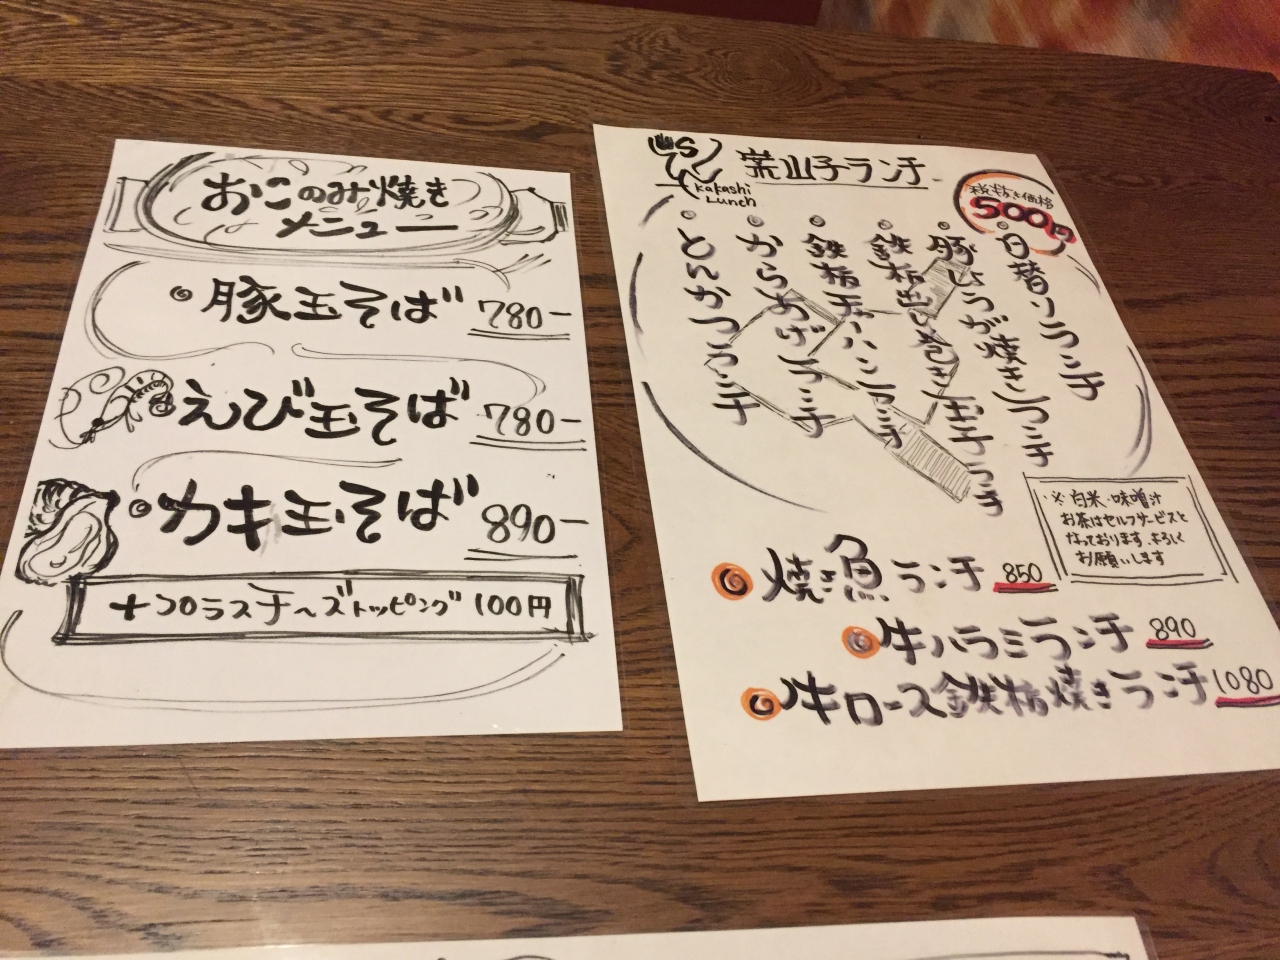 おこのみ焼き
メニュー
豚玉そば 780-
えび玉そば 780-
カキ玉そば 890-
+プラスチーズトッピング 100円
案山子ランチ
Kakashi
Lunch
税抜き価格
500円
日替りランチ
豚しょうが焼きランチ
鉄板出し巻き玉子ランチ
鉄板デハンランチ
からあげランチ
とんかつランチ
※白米・味噌汁
お茶はセルフサービスと
なっております。よろしく
お願いします
焼き魚ランチ 850
牛ハラミランチ 890
牛ロース鉄板焼きランチ 1080